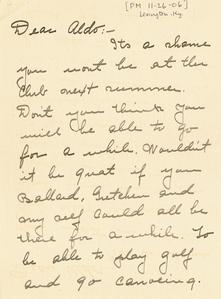 [PM 11-26-06]
Lexington, Ky.
Dear Aldo:-
Its a shame
you wont be at the
Club next summer.
Dont you think you
will be able to go
for a while. Wouldn't
it be great if you
Ballard, Gretchen and
my self could all be
there for a while. To
be able to play golf
and go canoeing.